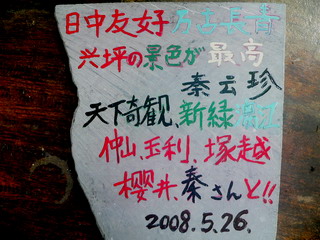 日中友好 万古長青
兴坪の景色が最高
秦云珍
天下奇観、新緑漓江
仲山、玉利、塚越
櫻井、秦さんと!!
2008.5.26.